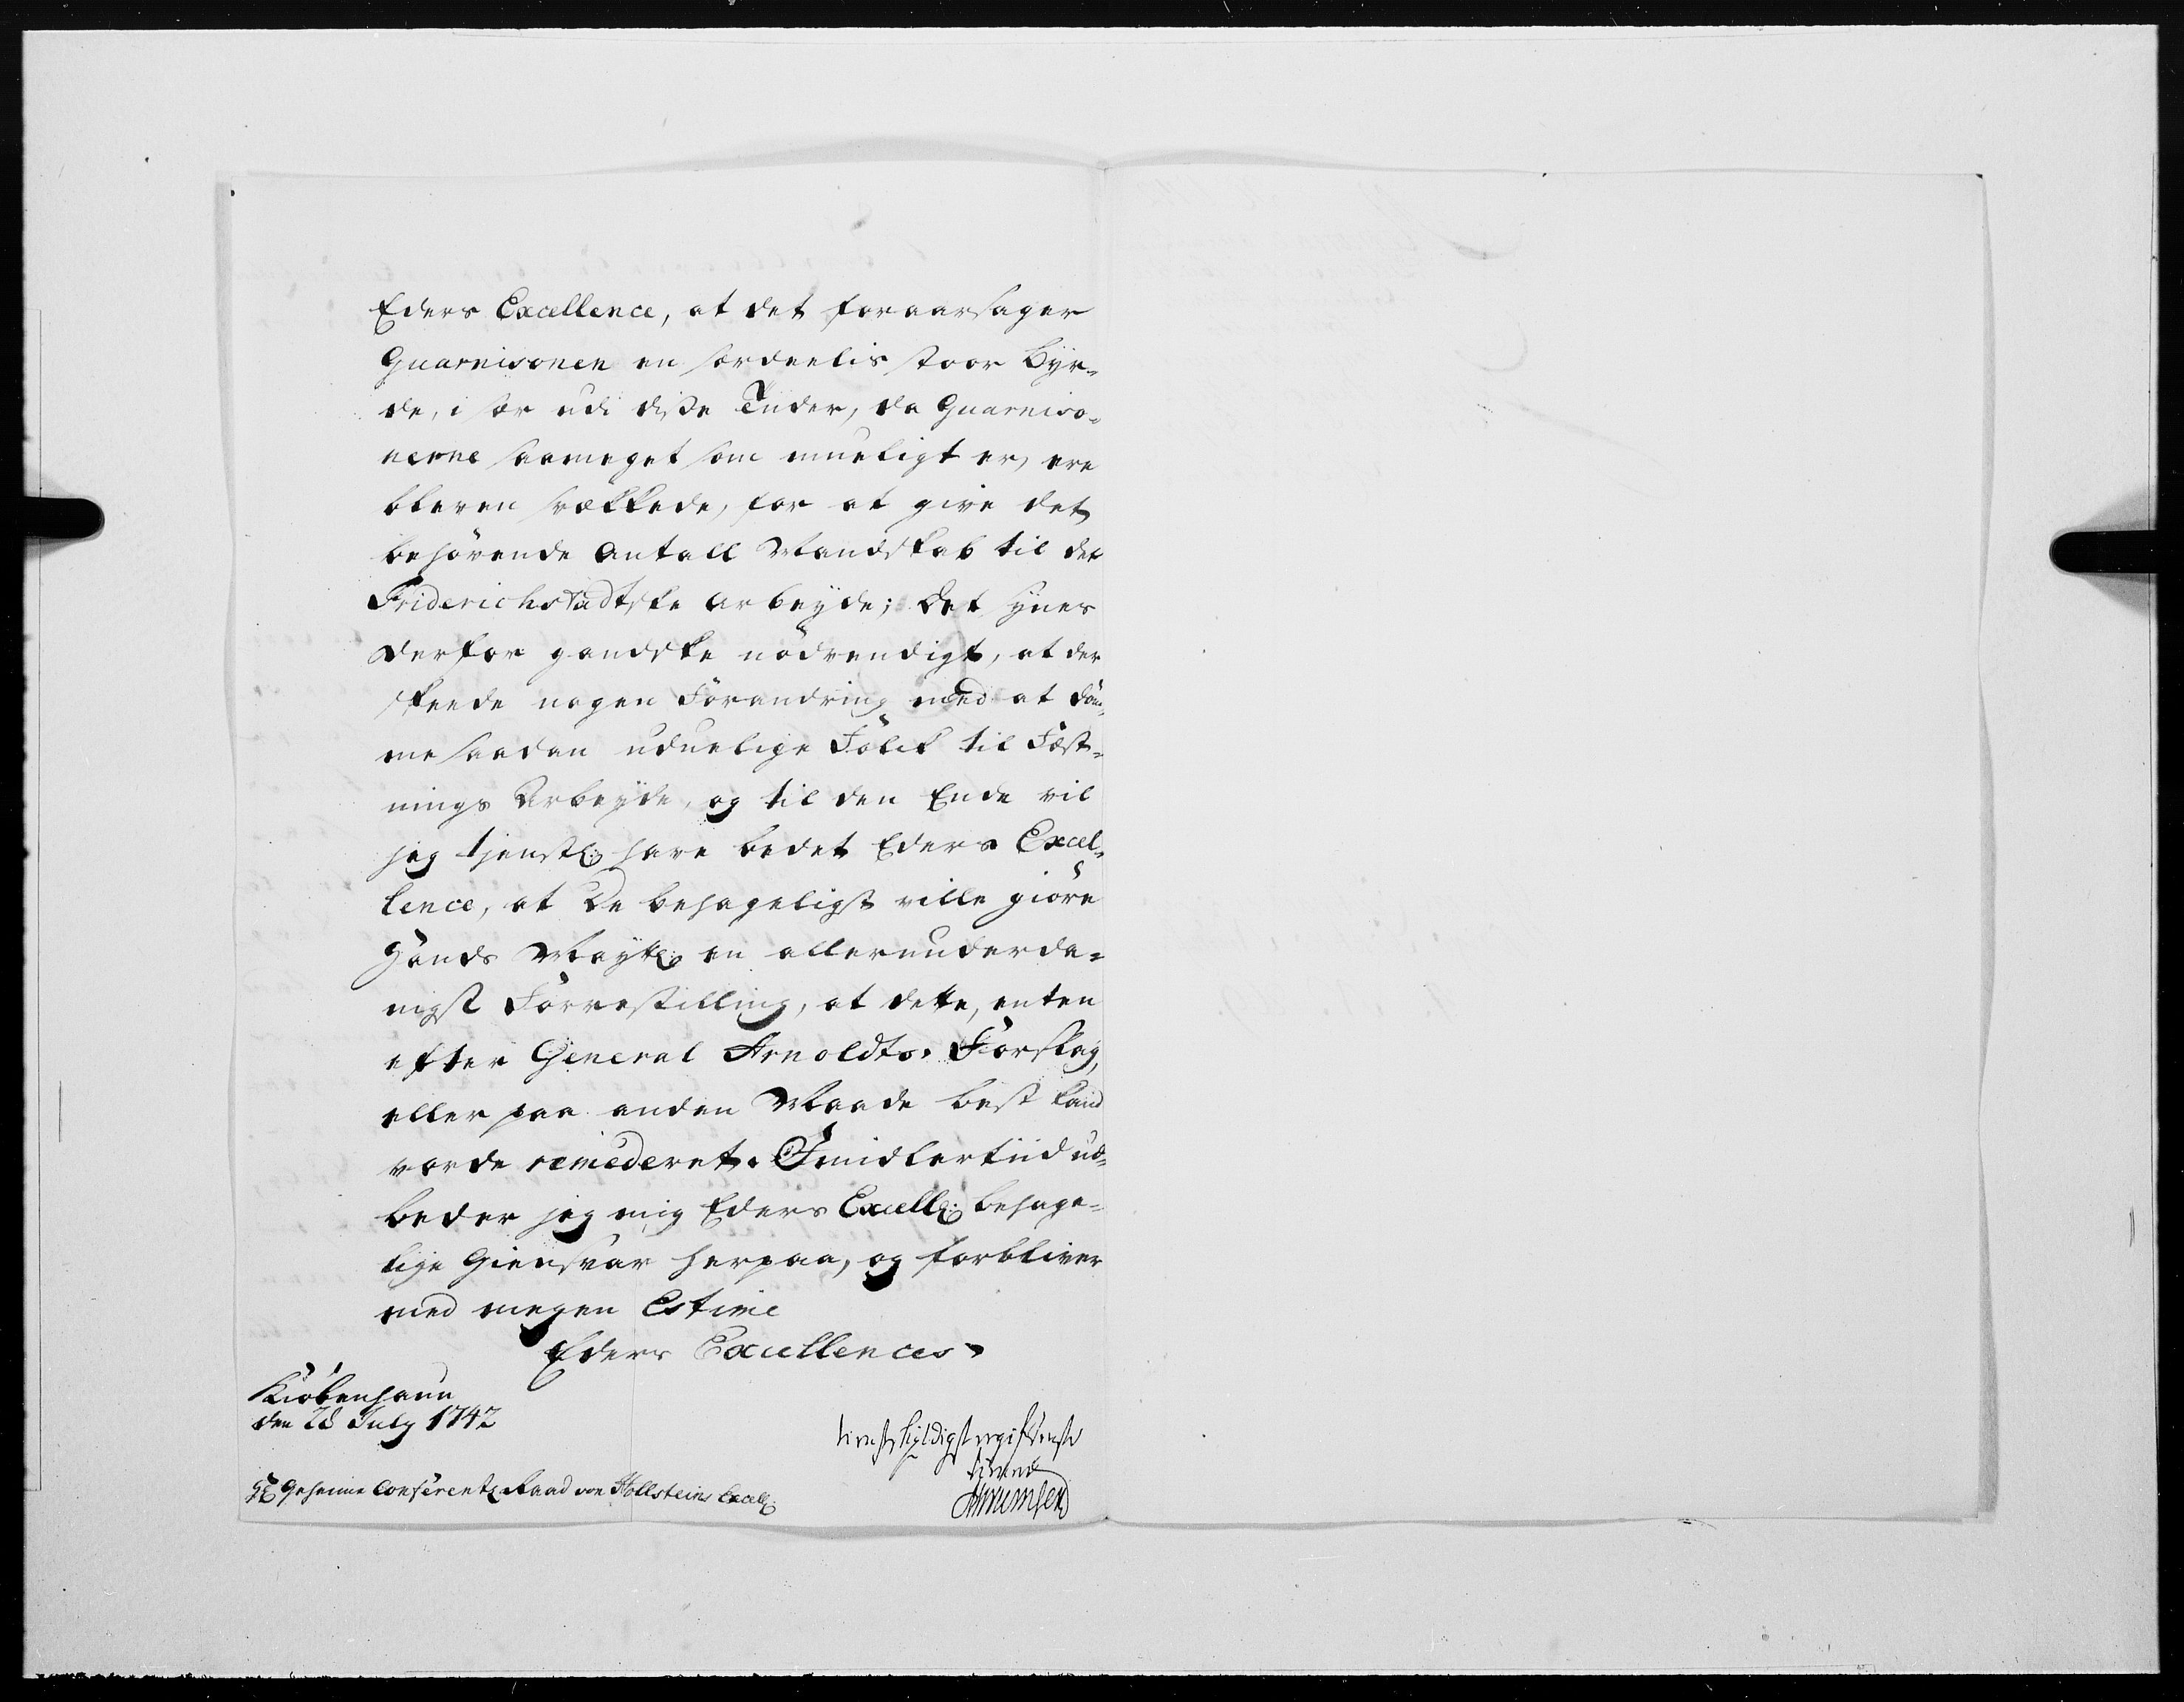 Eders Excellence, at det foraarsager
Guarnisonen en særdeelis stoor Byr-
de, i sær udi disse Tiider, da Guarniso-
nerne saameget som mueligt er, ere
bleven svækkede, for at give det
behørende Antall Mandskab til det
Friderichstadtske Arbeyde; Det synes
derfor gandske nødvendigt, at der
skeede nogen Forandring med at døm-
me saadan uduelige Folck til Fæst-
nings Arbeyde, og til den Ende vil
jeg tjenstl: have bedet Eders Excel-
lence, at De behageligst ville giøre
Hands Mayt: en allerunderda-
nigst Forrestilling, at dette, enten
efter General Arnoldts Forslag,
eller paa anden Maade best kand
vorde remederet. Imidlertiid ud-
beder jeg mig Eders Excell: behage-
lige Giensvar herpaa, og forbliver
med megen Estime
Eders Excellences
Kiøbenhavn
den 28 July 1742
tienstskyldigst ergifvenste
tienere
H: Geheime Conferentz Raad von Hollsteins Excell: